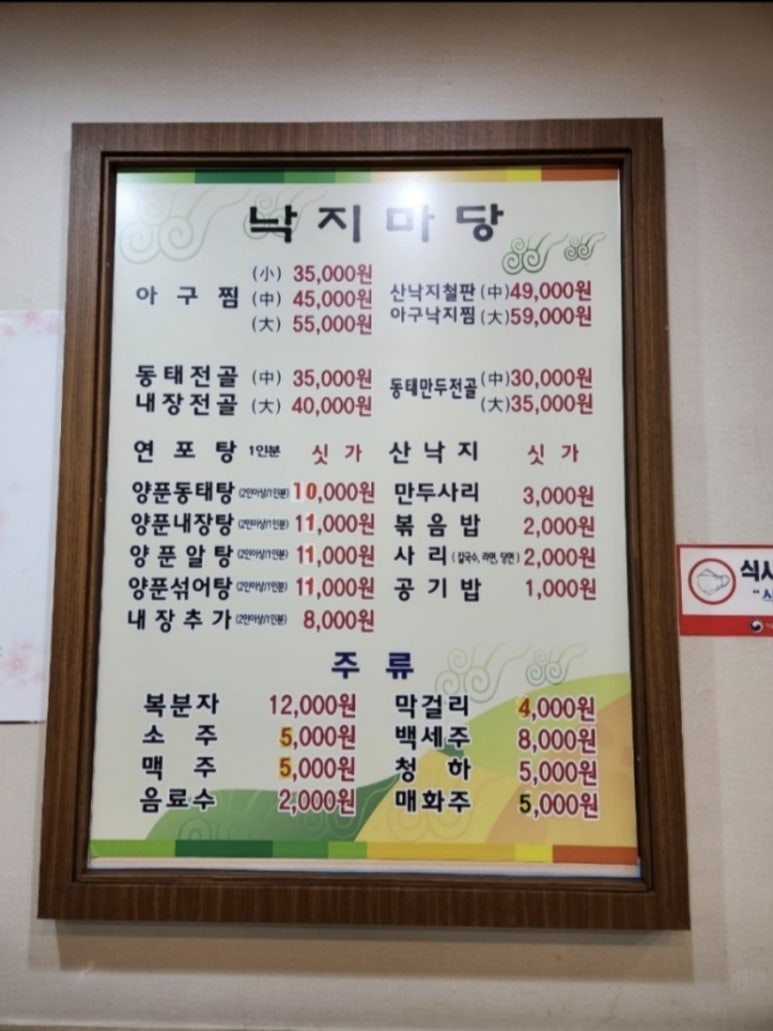 낙지마당
아구찜 (小) 35,000원
(中) 45,000원
(大) 55,000원
산낙지철판 (中) 49,000원
아구낙지찜 (大) 59,000원
동태전골 (中) 35,000원
내장전골 (大) 40,000원
동태만두전골 (中) 30,000원
(大) 35,000원
연포탕 1인분 싯가
산낙지 싯가
양푼동태탕 (2인이상/1인분) 10,000원
양푼내장탕 (2인이상/1인분) 11,000원
양푼알탕 (2인이상/1인분) 11,000원
양푼섞어탕 (2인이상/1인분) 11,000원
내장추가 (2인이상/1인분) 8,000원
만두사리 3,000원
볶음밥 2,000원
사리 (칼국수, 라면, 당면) 2,000원
공기밥 1,000원
주류
복분자 12,000원
소주 5,000원
맥주 5,000원
음료수 2,000원
막걸리 4,000원
백세주 8,000원
청하 5,000원
매화주 5,000원
식사